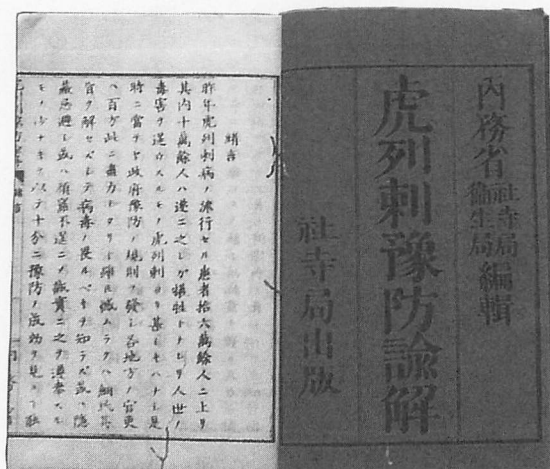 內務省社寺局衞生局編輯
虎列剌豫防諭解
社寺局出版
緒言
昨年虎列剌病ノ流行セル患者拾六萬餘人ニ上リ
其內十萬餘人ハ遂ニ之レガ犠牲トナレリ人世ノ
毒害ヲ逞ウスルモノ虎列剌ヨリ甚シキハナシ是
時ニ當テヤ政府豫防ノ規則ヲ發シ各地方ノ官吏
ハ百方此ニ盡力シタリト雖𪜈憾ムラクハ細民其
旨ヲ解セズシテ病毒ノ畏ルベキヲ知ラズ或ハ隱
蔽忌避シ或ハ頑 不逞ニ 誠實ニ之ヲ遵奉スル
モノ少ナキヲ以テ十分ニ豫防ノ成効ヲ見ル